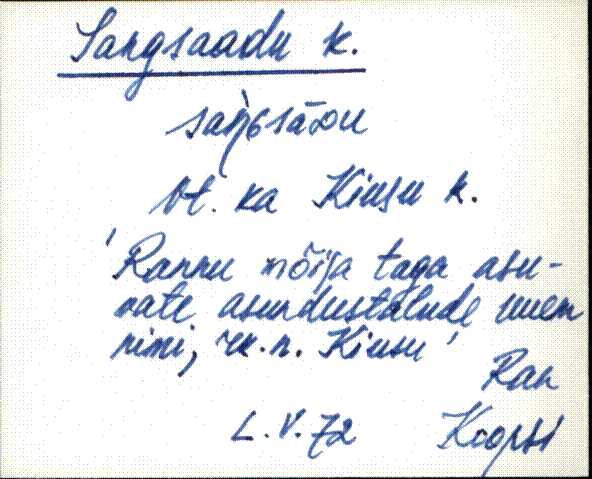 Sangsaadu k.
saŋ̀Gsāᴅu
Vt. ka Kiusu k.
'Rannu mõisa taga asu-
vate asundustalude uuem
nimi, rk.n. Kiusu'
Ran
L.V.72 Koopsi